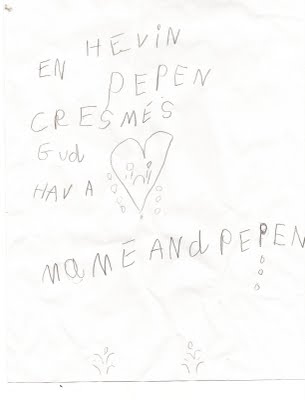 EN HEVIN
PEPEN
CRESMES
Gud
HAV A
NaME ANd PEPEN